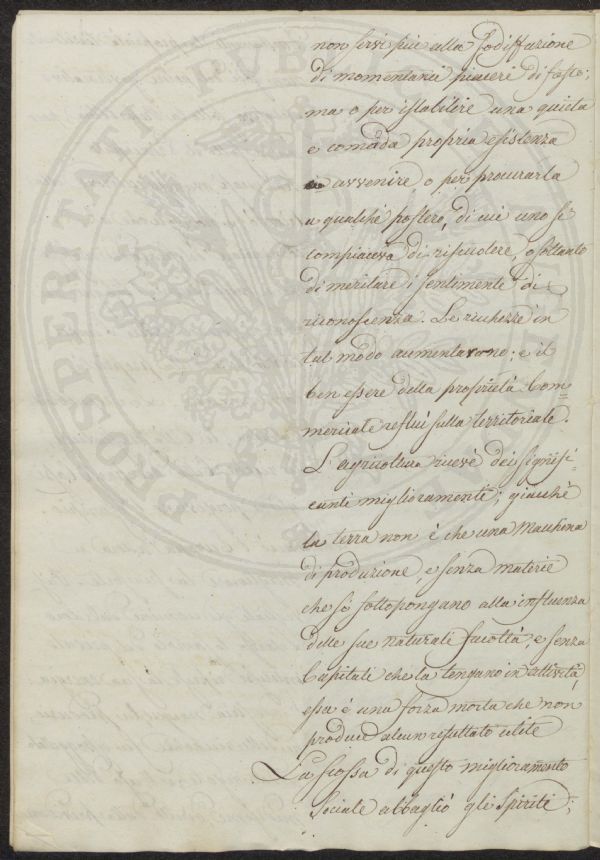 non servì più alla sodisfazione
di momentanei piaceri di fasto;
ma o per istabilire una quieta
e comoda propria esistenza
avvenire, o per procurarla
a qualche postero, di cui uno si
compiaceva di riscuotere, o soltanto
di meritare i sentimenti di
riconoscenza. Le ricchezze in
tal modo aumentarono; e il
ben essere della proprietà Com=
merciale refluì sulla territoriale.
L'agricoltura ricevè dei signifi=
canti miglioramenti; giacchè
la terra non è che una Macchina
di produzione, e senza materie
che si sottopongano alla influenza
delle sue naturali facoltà, e senza
Capitali che la tengano in attività,
essa è una forza morta che non
produce alcun resultato utile
La scossa di questo miglioramento
Sociale abbagliò gli Spiriti;
POSTERITATI PUBLICAE